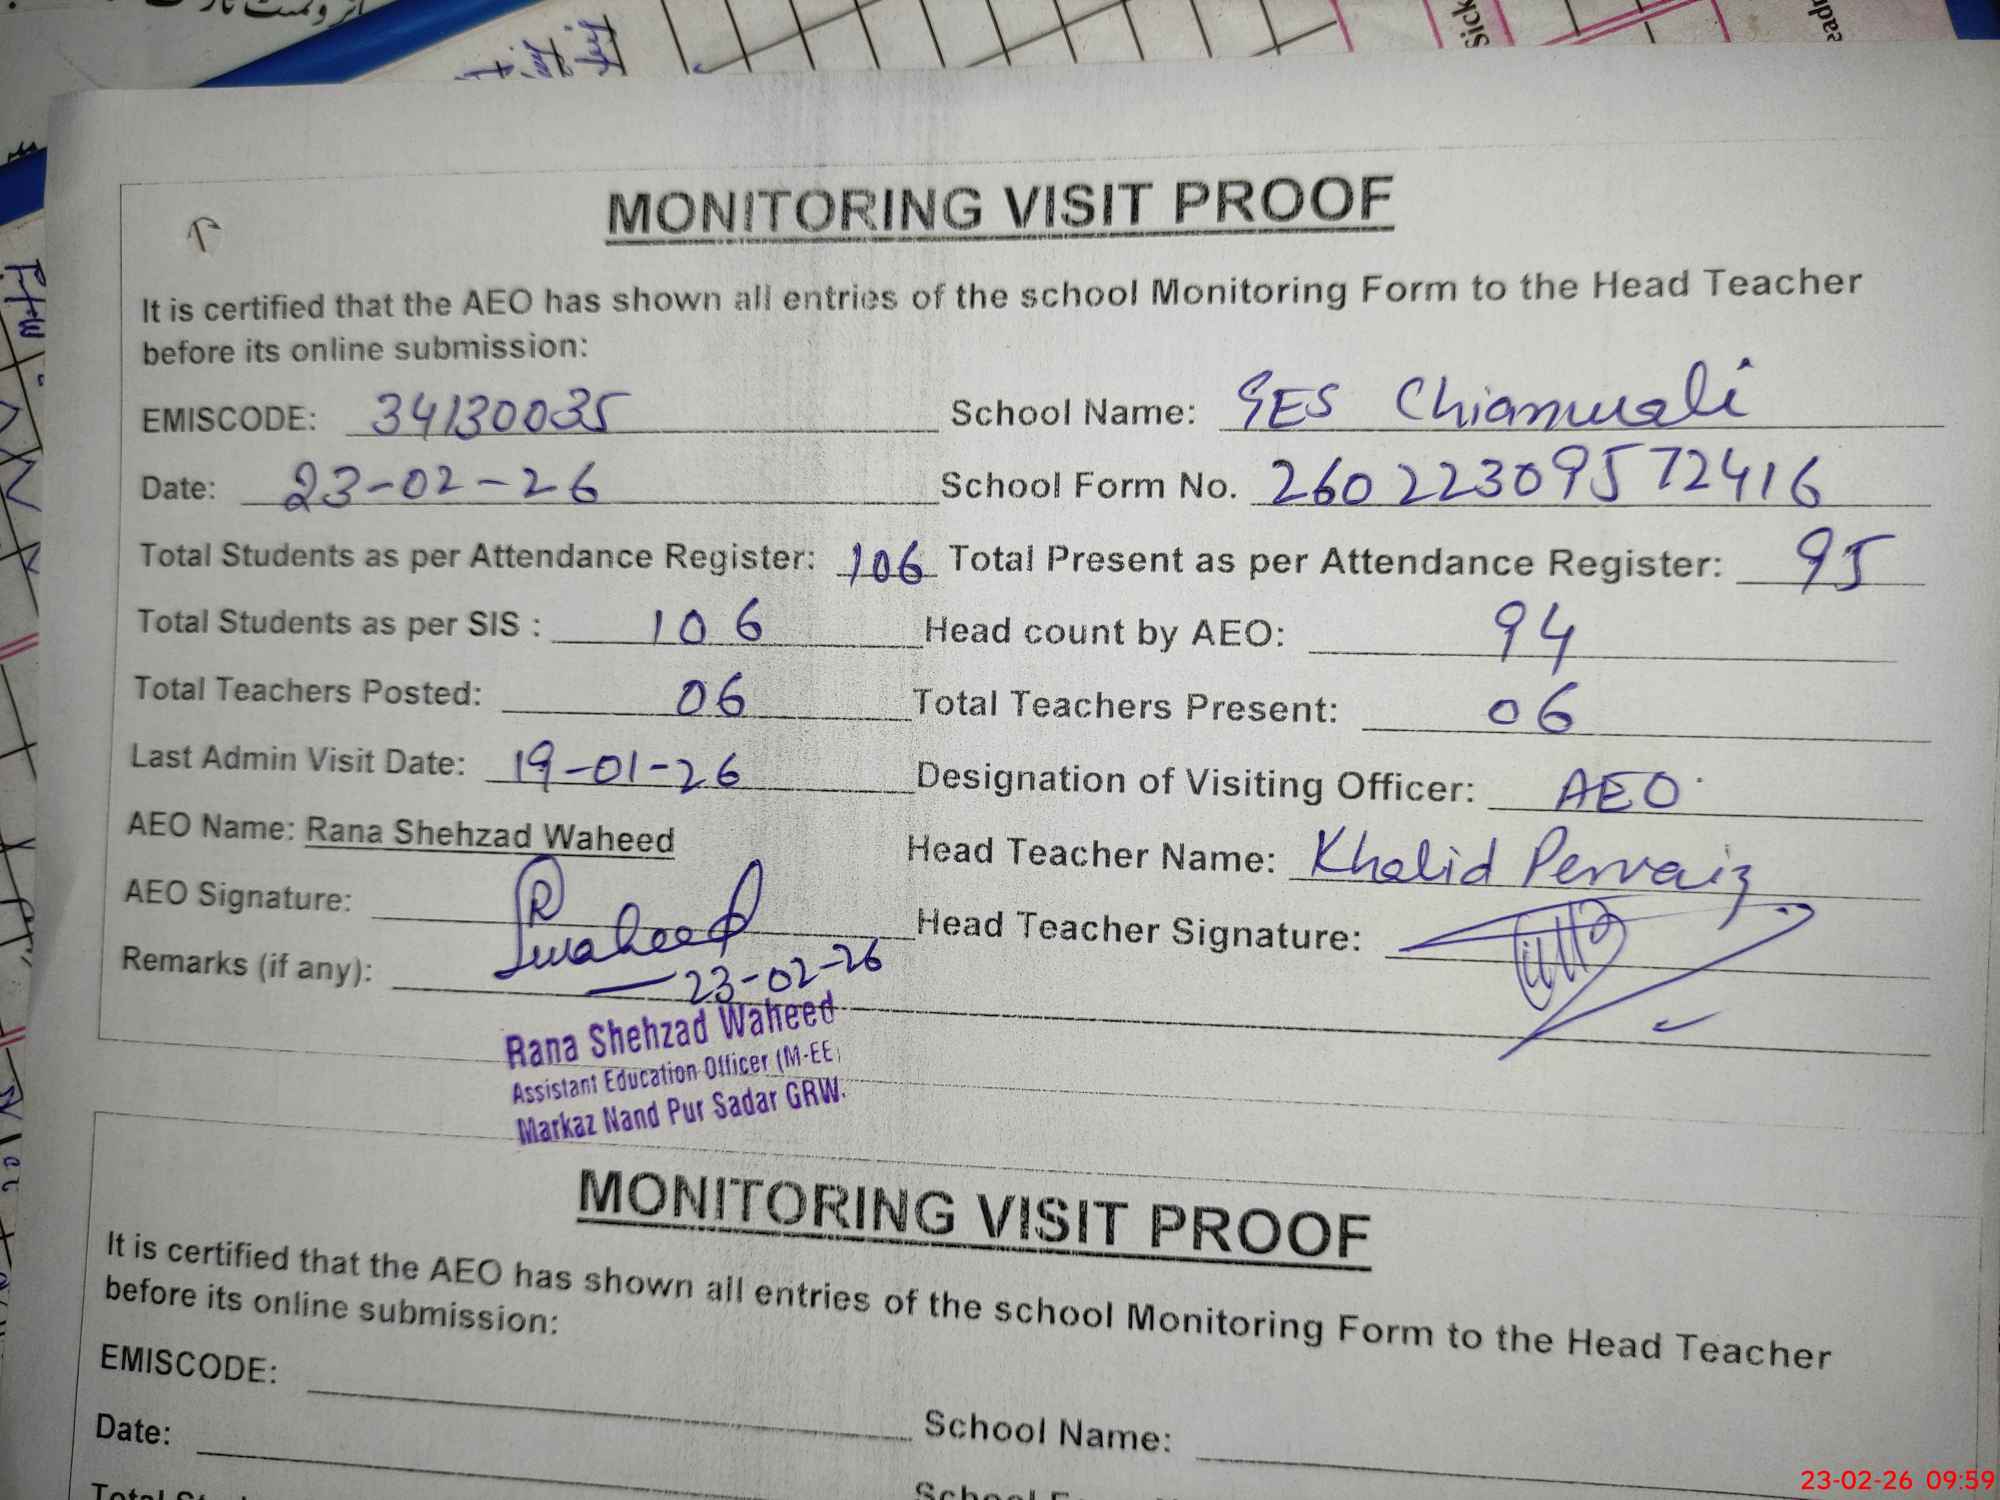 MONITORING VISIT PROOF
It is certified that the AEO has shown all entries of the school Monitoring Form to the Head Teacher
before its online submission:
EMISCODE: 34130035 School Name: GES Chianwali
Date: 23-02-26 School Form No. 26022309572416
Total Students as per Attendance Register: 106 Total Present as per Attendance Register: 95
Total Students as per SIS : 106 Head count by AEO: 94
Total Teachers Posted: 06 Total Teachers Present: 06
Last Admin Visit Date: 19-01-26 Designation of Visiting Officer: AEO
AEO Name: Rana Shehzad Waheed Head Teacher Name: Khalid Pervaiz
AEO Signature: Head Teacher Signature:
Remarks (if any): 23-02-26
Rana Shehzad Waheed
Assistant Education Officer (M-EE)
Markaz Nand Pur Sadar GRW.
MONITORING VISIT PROOF
It is certified that the AEO has shown all entries of the school Monitoring Form to the Head Teacher
before its online submission:
EMISCODE:
School Name:
Date:
23-02-26 09:59